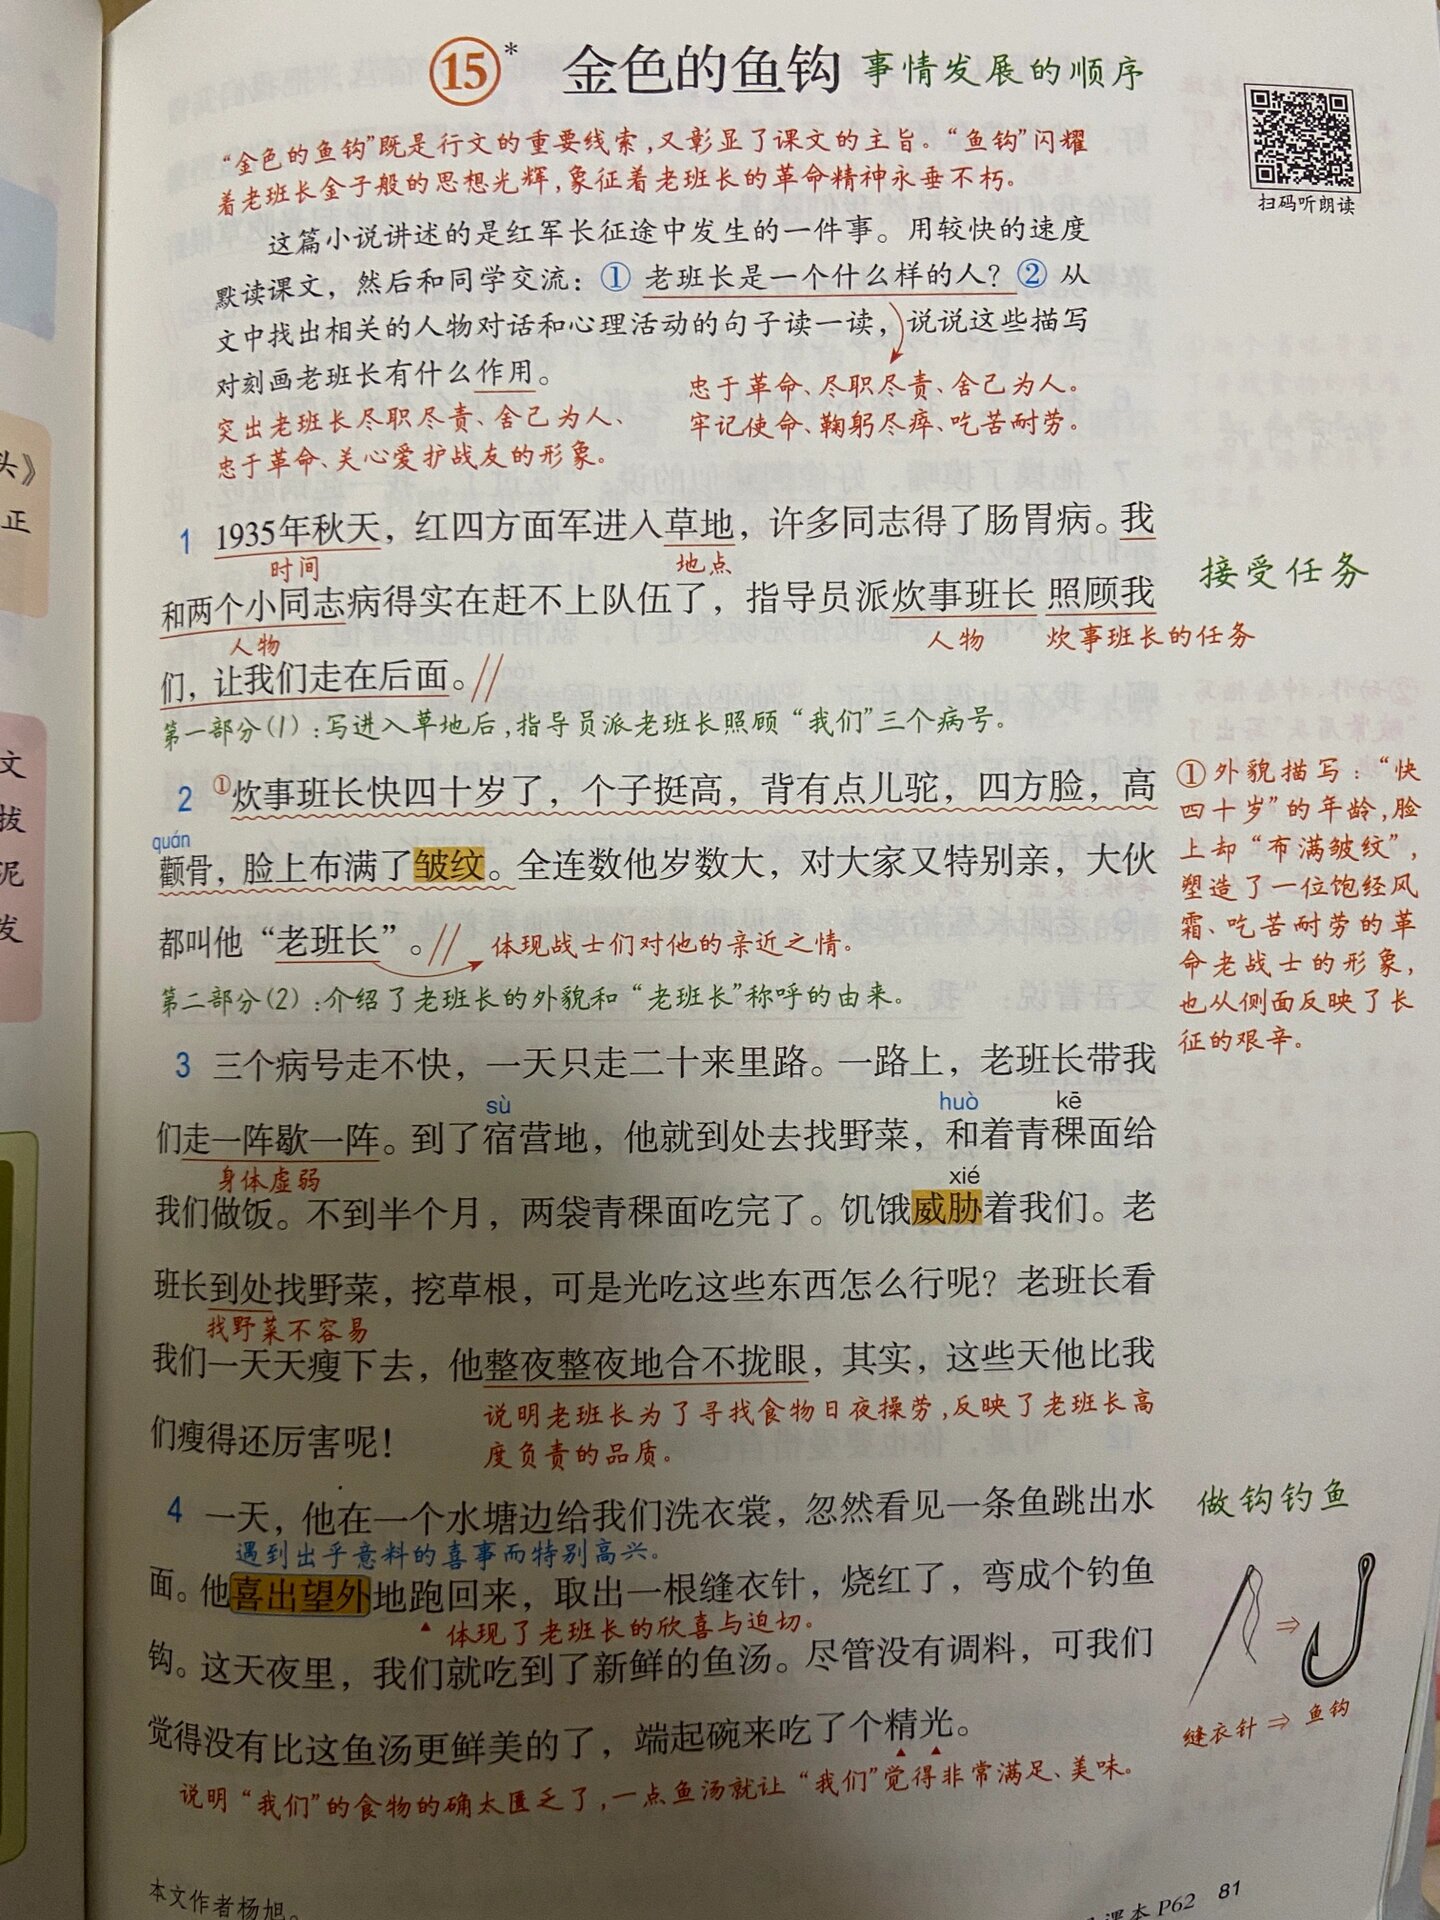 15* 金色的鱼钩 事情发展的顺序
“金色的鱼钩”既是行文的重要线索，又彰显了课文的主旨。“鱼钩”闪耀
着老班长金子般的思想光辉，象征着老班长的革命精神永垂不朽。
扫码听朗读
这篇小说讲述的是红军长征途中发生的一件事。用较快的速度
默读课文，然后和同学交流：① 老班长是一个什么样的人？② 从
文中找出相关的人物对话和心理活动的句子读一读，说说这些描写
对刻画老班长有什么作用。
忠于革命、尽职尽责、舍己为人。
牢记使命、鞠躬尽瘁、吃苦耐劳。
突出老班长尽职尽责、舍己为人、
忠于革命、关心爱护战友的形象。
1 1935年秋天，红四方面军进入草地，许多同志得了肠胃病。我
时间 地点
接受任务
和两个小同志病得实在赶不上队伍了，指导员派炊事班长 照顾我
人物 人物 炊事班长的任务
们，让我们走在后面。//
第一部分(1)：写进入草地后，指导员派老班长照顾“我们”三个病号。
2 ①炊事班长快四十岁了，个子挺高，背有点儿驼，四方脸，高
quán
颧骨，脸上布满了皱纹。全连数他岁数大，对大家又特别亲，大伙
都叫他“老班长”。// 体现战士们对他的亲近之情。
第二部分(2)：介绍了老班长的外貌和“老班长”称呼的由来。
①外貌描写：“快
四十岁”的年龄，脸
上却“布满皱纹”，
塑造了一位饱经风
霜、吃苦耐劳的革
命老战士的形象，
也从侧面反映了长
征的艰辛。
3 三个病号走不快，一天只走二十来里路。一路上，老班长带我
sù huò kē
们走一阵歇一阵。到了宿营地，他就到处去找野菜，和着青稞面给
身体虚弱 xié
我们做饭。不到半个月，两袋青稞面吃完了。饥饿威胁着我们。老
班长到处找野菜，挖草根，可是光吃这些东西怎么行呢？老班长看
找野菜不容易
我们一天天瘦下去，他整夜整夜地合不拢眼，其实，这些天他比我
说明老班长为了寻找食物日夜操劳，反映了老班长高
们瘦得还厉害呢！
度负责的品质。
4 一天，他在一个水塘边给我们洗衣裳，忽然看见一条鱼跳出水
做钩钓鱼
遇到出乎意料的喜事而特别高兴。
面。他喜出望外地跑回来，取出一根缝衣针，烧红了，弯成个钓鱼
体现了老班长的欣喜与迫切。
钩。这天夜里，我们就吃到了新鲜的鱼汤。尽管没有调料，可我们
缝衣针⇒鱼钩
觉得没有比这鱼汤更鲜美的了，端起碗来吃了个精光。
说明“我们”的食物的确太匮乏了，一点鱼汤就让“我们”觉得非常满足、美味。
本文作者杨旭。
课本P62 81
头》
正
文
拔
泥
发